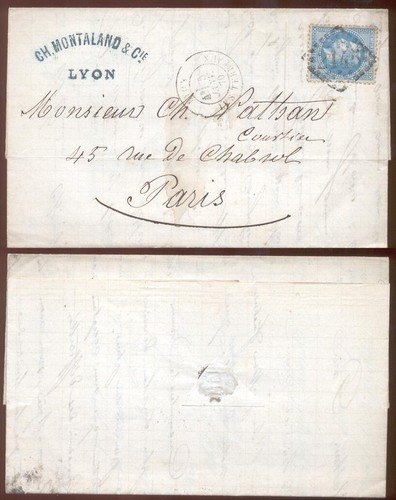 CH. MONTALAND & CIE
LYON
Monsieur Ch. Nathan
Courtier
45 rue de Chabrol
Paris